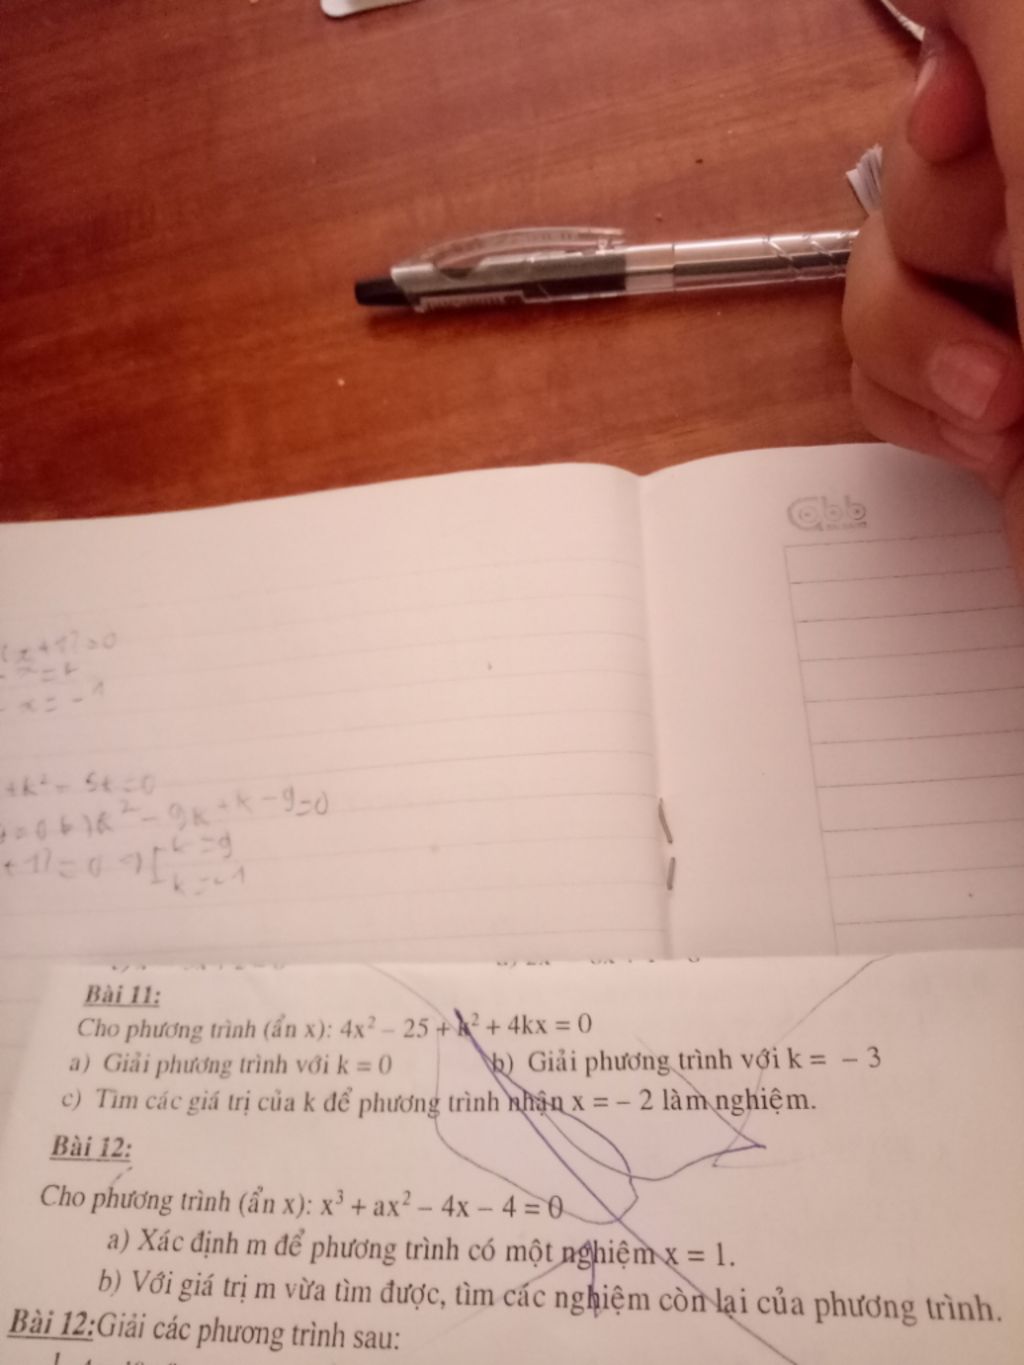 abb
(x+1)=0
x=-1
+k²- 5k=0
k²-9k+k-9=0
+1)=0 => [k=9
k=-1
Bài 11:
Cho phương trình (ẩn x): 4x² – 25 + k² + 4kx = 0
a) Giải phương trình với k = 0 b) Giải phương trình với k = – 3
c) Tìm các giá trị của k để phương trình nhận x = – 2 làm nghiệm.
Bài 12:
Cho phương trình (ẩn x): x³ + ax² – 4x – 4 = 0
a) Xác định m để phương trình có một nghiệm x = 1.
b) Với giá trị m vừa tìm được, tìm các nghiệm còn lại của phương trình.
Bài 12:Giải các phương trình sau: